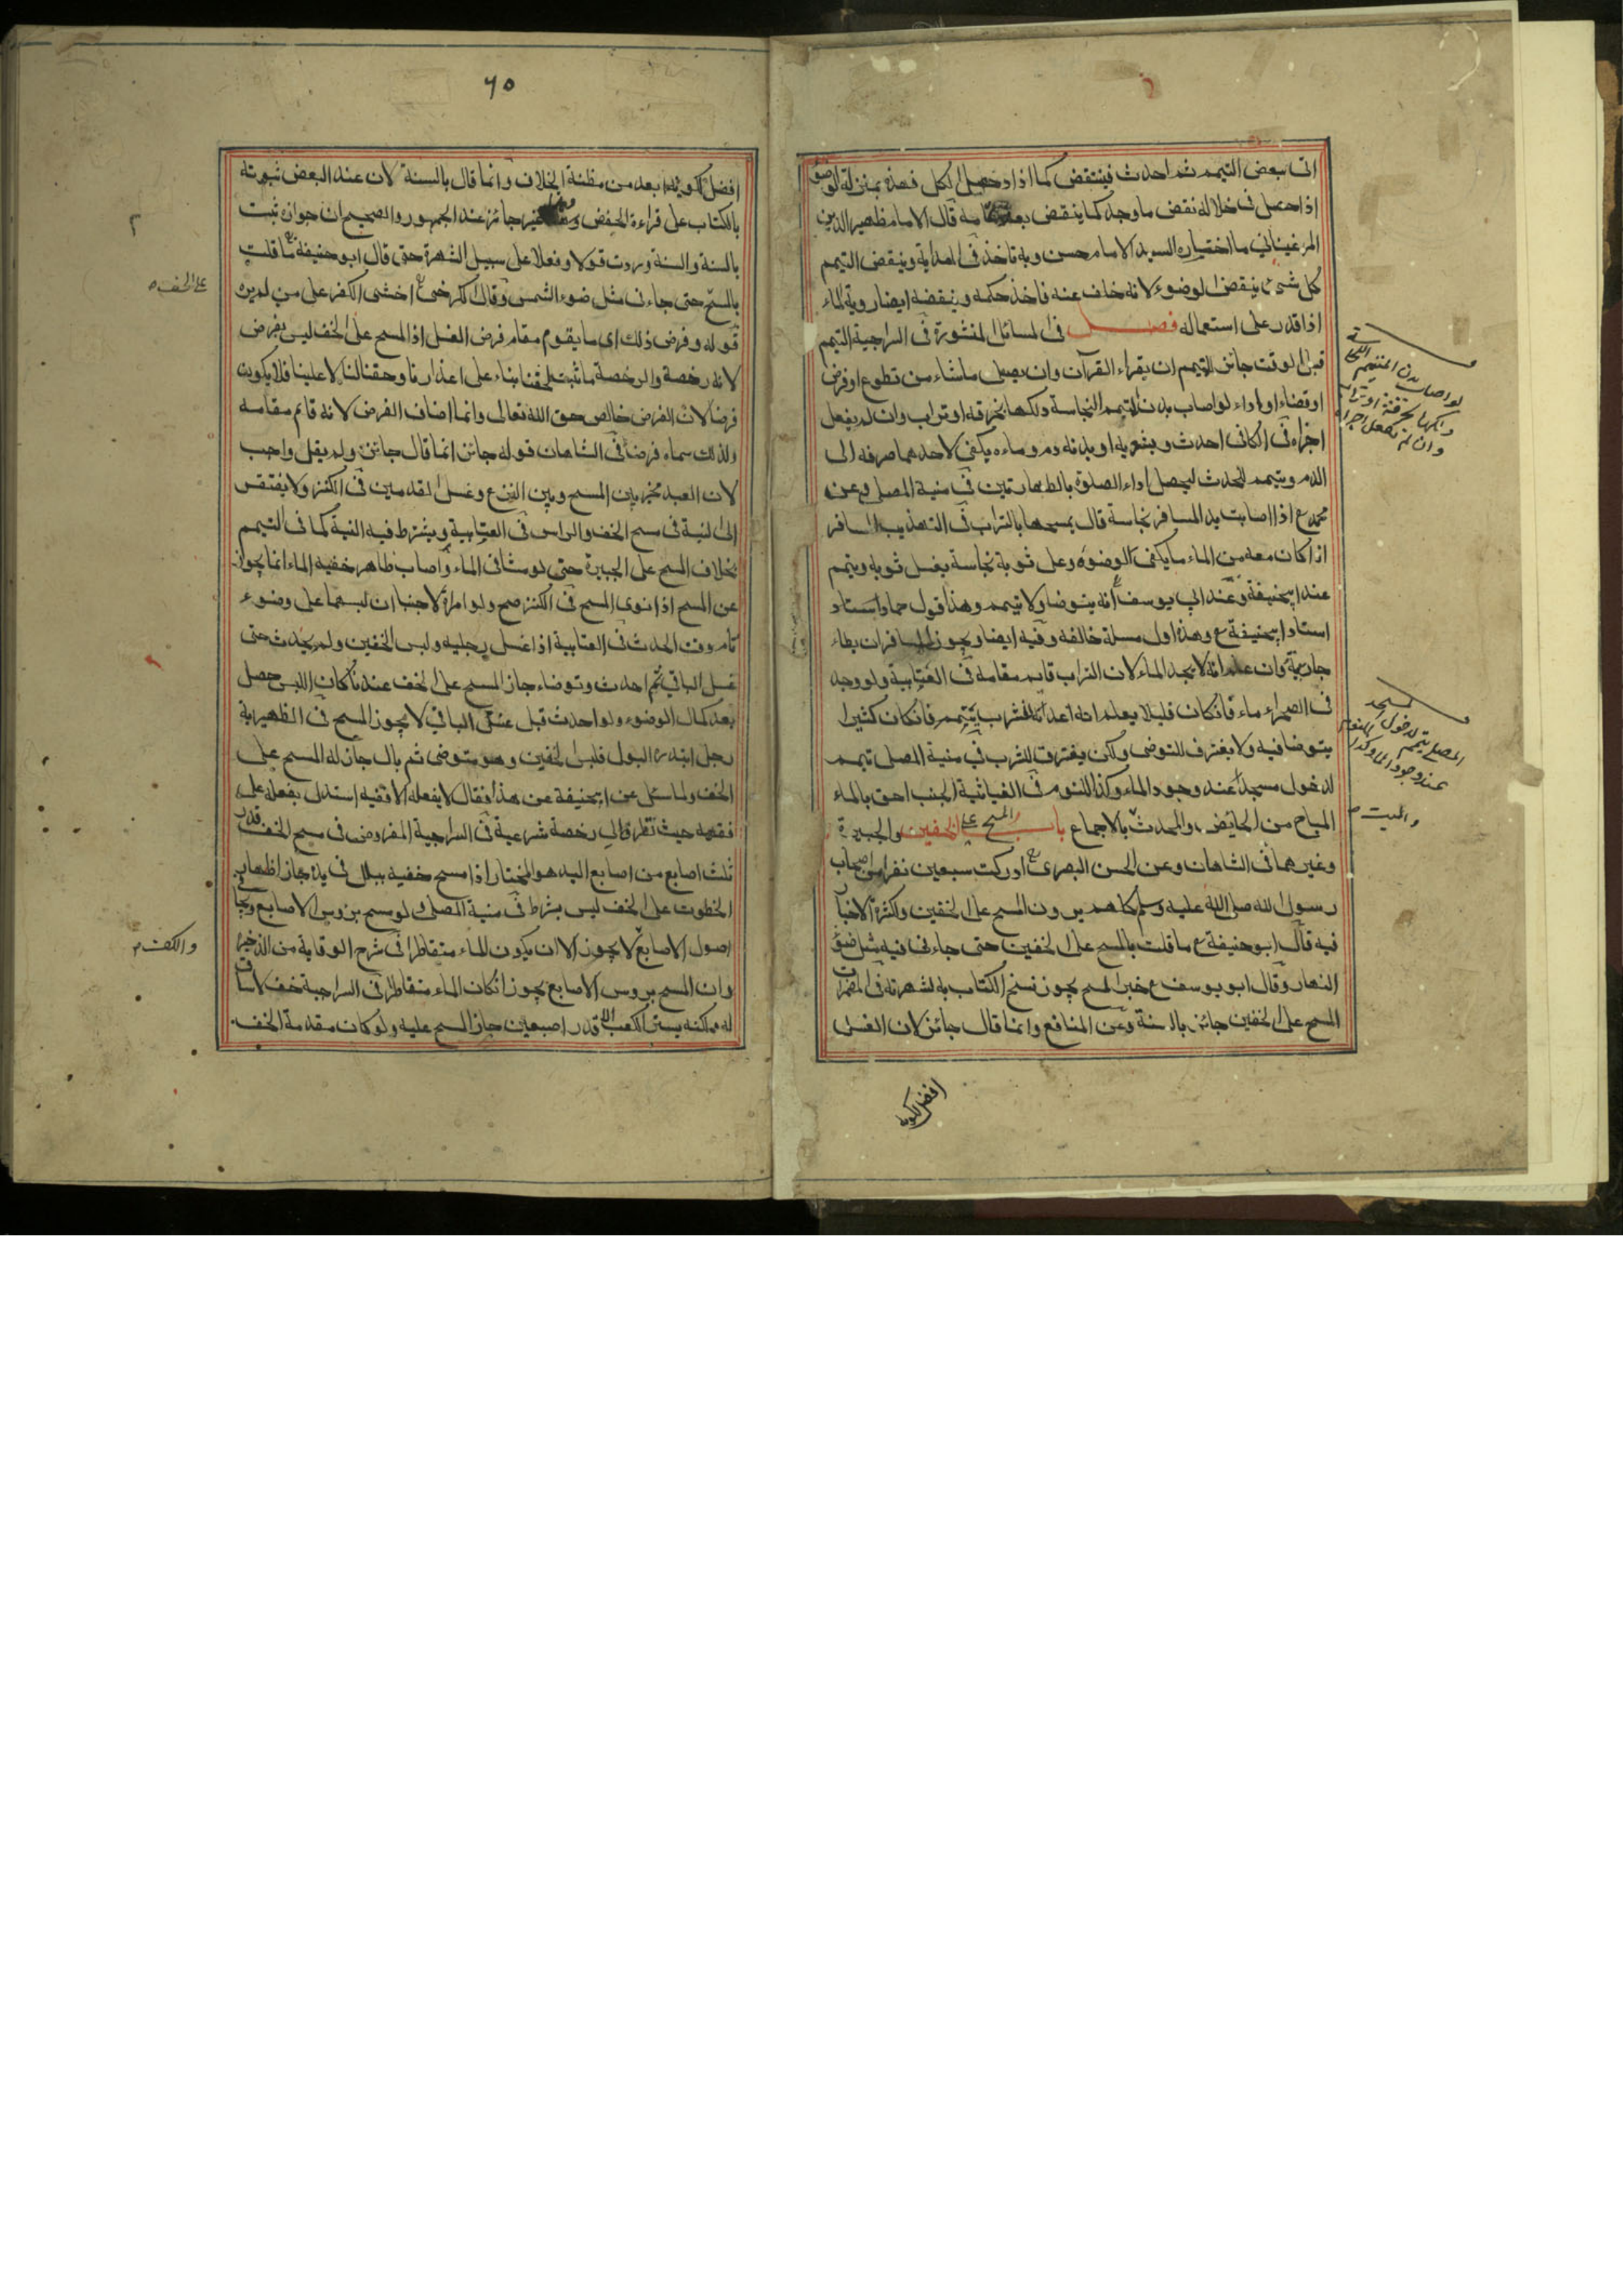 الى بعض التيمم ثم احدث فينتقض كما اذا حصل الكل فهذه بمنزلة الوضوء
اذا حصل فى خلاله نقض ما وجد كما ينقض بعد تمامه قال الامام ظهير الدين
المرغينانى ما اختياره السيد الامام حسن وبه ناخذ فى الهداية وينقض التيمم
كل شىء ينقض الوضوء لانه خلف عنه فاخذ حكمه وينقضه ايضا روية الماء
اذا قدر على استعماله فصل فى المسائل المنثورة فى السراجية التيمم
قبل الوقت جائز للتيمم ان يقراء القرآن وان يصلى ما شاء من تطوع او فرض
او قضاء او اداء لو اصاب بدن المتيمم النجاسة دلكها بخرقه او تراب وان لم يفعل
اجزاه فى الكافى احدث وبثوبه او بدنه دم وماءه يكفى لاحدهما صرفه الى
الدم وتيمم للحدث ليحصل اداء الصلوة بالطهارتين فى منية المصلى وعن
محمد ع اذا اصابت يد المسافر نجاسة قال يمسحها بالتراب فى التهذيب المسافر
اذا كان معه من الماء ما يكفى الوضوء وعلى ثوبه نجاسة يغسل ثوبه ويتمم
عند ابيحنيفة وعند ابى يوسف انه يتوضا ولا تيمم وهذا قول حماد استاد
استاد ابيحنيفة ع وهذه اول مسئلة خالفه وفيه ايضا ويجوز للمسافر ان يطاء
جاريته وان علم انه لا يجد الماء لان التراب قايم مقامه فى العتابية ولو وجد
فى الصحراء ماء فانكان قليلا يعلم انه اعد للشرب يتيمم فانكان كثيرا
يتوضا فيه ولا يغترف للتوضى ولكن يغترف للشرب فى منية المصلى تيمم
لدخول مسجد عند وجود الماء وكذا للنوم فى الغياثية الجنب احق بالماء
المباح من الحايض والمحدث بالاجماع باب المسح على الخفين والجبيرة
وغيرهما فى الشاهان وعن الحسن البصرى ادركت سبعين نفرا من اصحاب
رسول الله صلى الله عليه وسلم كلهم يرون المسح على الخفين ولكثرة الاخبار
فيه قال ابو حنيفة ع ما قلت بالمسح على الخفين حتى جاءنى فيه مثل ضوء
النهار وقال ابو يوسف ع خبر المسح يجوز نسخ الكتاب به لشهرته فى المضمرات
المسح على الخفين جائز بالسنة وعن المنافع وانما قال جائز لان الغسل
افضل لكونه
لو اصاب بدن المتيمم النجاسة
دلكها بخرقة او تراب
وان لم يفعل اجزاه
المصلى تيمم لدخول المسجد
عند وجود الماء وكذا للنوم
والميت
٦٥
افضل لكونه ابعد من مظنة الخلاف وانما قال بالسنة لان عند البعض ثبوته
بالكتاب على قراءة الخفض غير جائز عند الجمهور والصحيح ان جوازه ثبت
بالسنة والسنة وردت قولا وفعلا على سبيل الشهرة حتى قال ابو حنيفة ما قلت
بالمسح حتى جاءنى مثل ضوء الشمس وقال الكرخى اخشى الكفر على من لم يره
قوله وفرض ذلك اى ما يقوم مقام فرض الغسل اذ المسح على الخف ليس بفرض
لانه رخصة والرخصة ما ثبت بناء على اعذارنا وحقنا لنا لا علينا فلا يكون
فرضا لان الفرض خالص حق الله تعالى وانما اضاف الفرض لانه قائم مقامه
ولذلك سماه فرضا فى الشاهان قوله جائز انما قال جائز ولم يقل واجب
لان العبد مخير بين المسح وبين النزع وغسل القدمين فى الكنز ولا يفتقر
الى النية فى مسح الخف والراس فى العتابية ويشترط فيه النية كما فى التيمم
بخلاف المسح على الجبيرة حتى لو مشا فى الماء واصاب ظاهر خفيه الماء انما يجوز
عن المسح اذا نوى المسح فى الكنز صح ولو امراة لا جنبا ان لبسهما على وضوء
تام وقت الحدث فى العتابية اذا غسل رجليه ولبس الخفين ولم يحدث حتى
غسل الباقى ثم احدث وتوضاء جاز المسح على الخف عندنا كان اللبس حصل
بعد كمال الوضوء ولو احدث قبل غسل الباقى لا يجوز المسح فى الظهيرية
رجل ابتدره البول فلبس الخفين وهو متوضى ثم بال جاز له المسح على
الخف ولما سئل عن ابيحنيفة عن هذا فقال لا يفعله الا فقيه استدل بفعله على
فقهه حيث تطرق الى رخصة شرعية فى السراجية المفروض فى مسح الخف قدر
ثلث اصابع من اصابع اليد هو المختار اذا مسح خفيه ببلل فى يده جاز اظهار
الخطوط على الخف ليس بشرط فى منية المصلى ولو مسح بروس الاصابع وجافى
اصول الاصابع لا يجوز الا ان يكون الماء متقاطرا فى شرح الوقاية من الذخيرة
وان المسح بروس الاصابع يجوز انكان الماء متقاطرا فى السراجية خف لا ساق
له لكنه يستر الكعب الا قدر اصبعين جاز المسح عليه ولو كان مقدمة الخف
على الخف
والكف